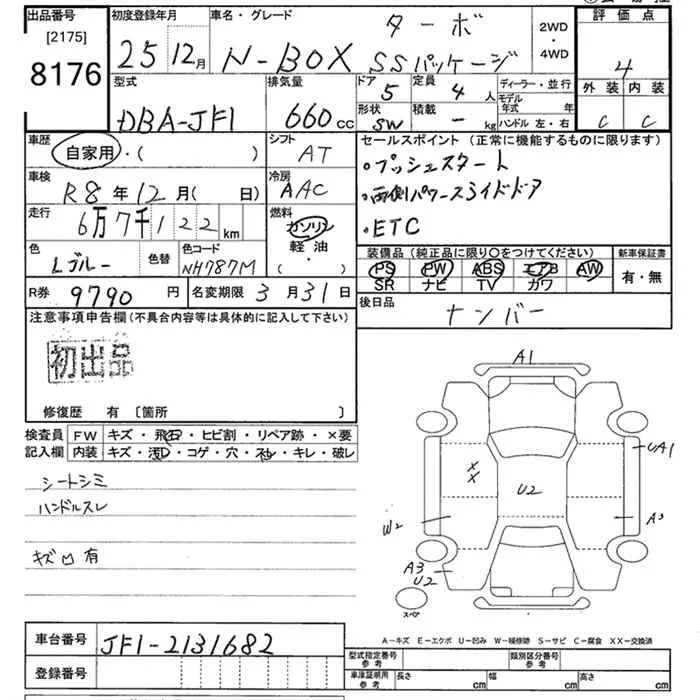 出品番号 初度登録年月 車名・グレード ターボ 2WD・4WD 評価点
[2175]
8176 25 12月 N-BOX SSパッケージ 4
型式 排気量 ドア 定員 ディーラー・並行 外装 内装
DBA-JF1 660cc 5 4人 モデル年式 年
形状 積載 ハンドル 左・右 C C
SW - kg
車歴 自家用・( ) シフト AT
セールスポイント (正常に機能するものに限ります)
・プッシュスタート
・両側パワースライドドア
・ETC
車検 R8年12月( 日) 冷房 AAC
走行 6万7千122km 燃料 ガソリン 軽油・( )
色 Lブルー 色替 色コード NH787M
装備品 (純正品に限り○をつけてください) 新車保証書
PS PW ABS エアB AW 有・無
SR ナビ TV カワ
R券 9790円 名変期限 3月31日
後日品 ナンバー
注意事項申告欄(不具合内容等は具体的に記入して下さい)
初出品
修復歴 有 〔箇所 〕
検査員 FW キズ・飛石・ヒビ割・リペア跡・×要
記入欄 内装 キズ・汚れ・コゲ・穴・スレ・キレ・破レ
シートシミ
ハンドルスレ
キズ凹有
A1
UA1
XX
U2
W2 A3
A3
U2
スペア
A-キズ E-エクボ U-凹み W-補修跡 S-サビ C-腐食 XX-交換済
車台番号 JF1-2131682
登録番号
型式指定番号 参考 類別区分番号 参考
車庫証明用 参考 長さ cm 幅 cm 高さ cm